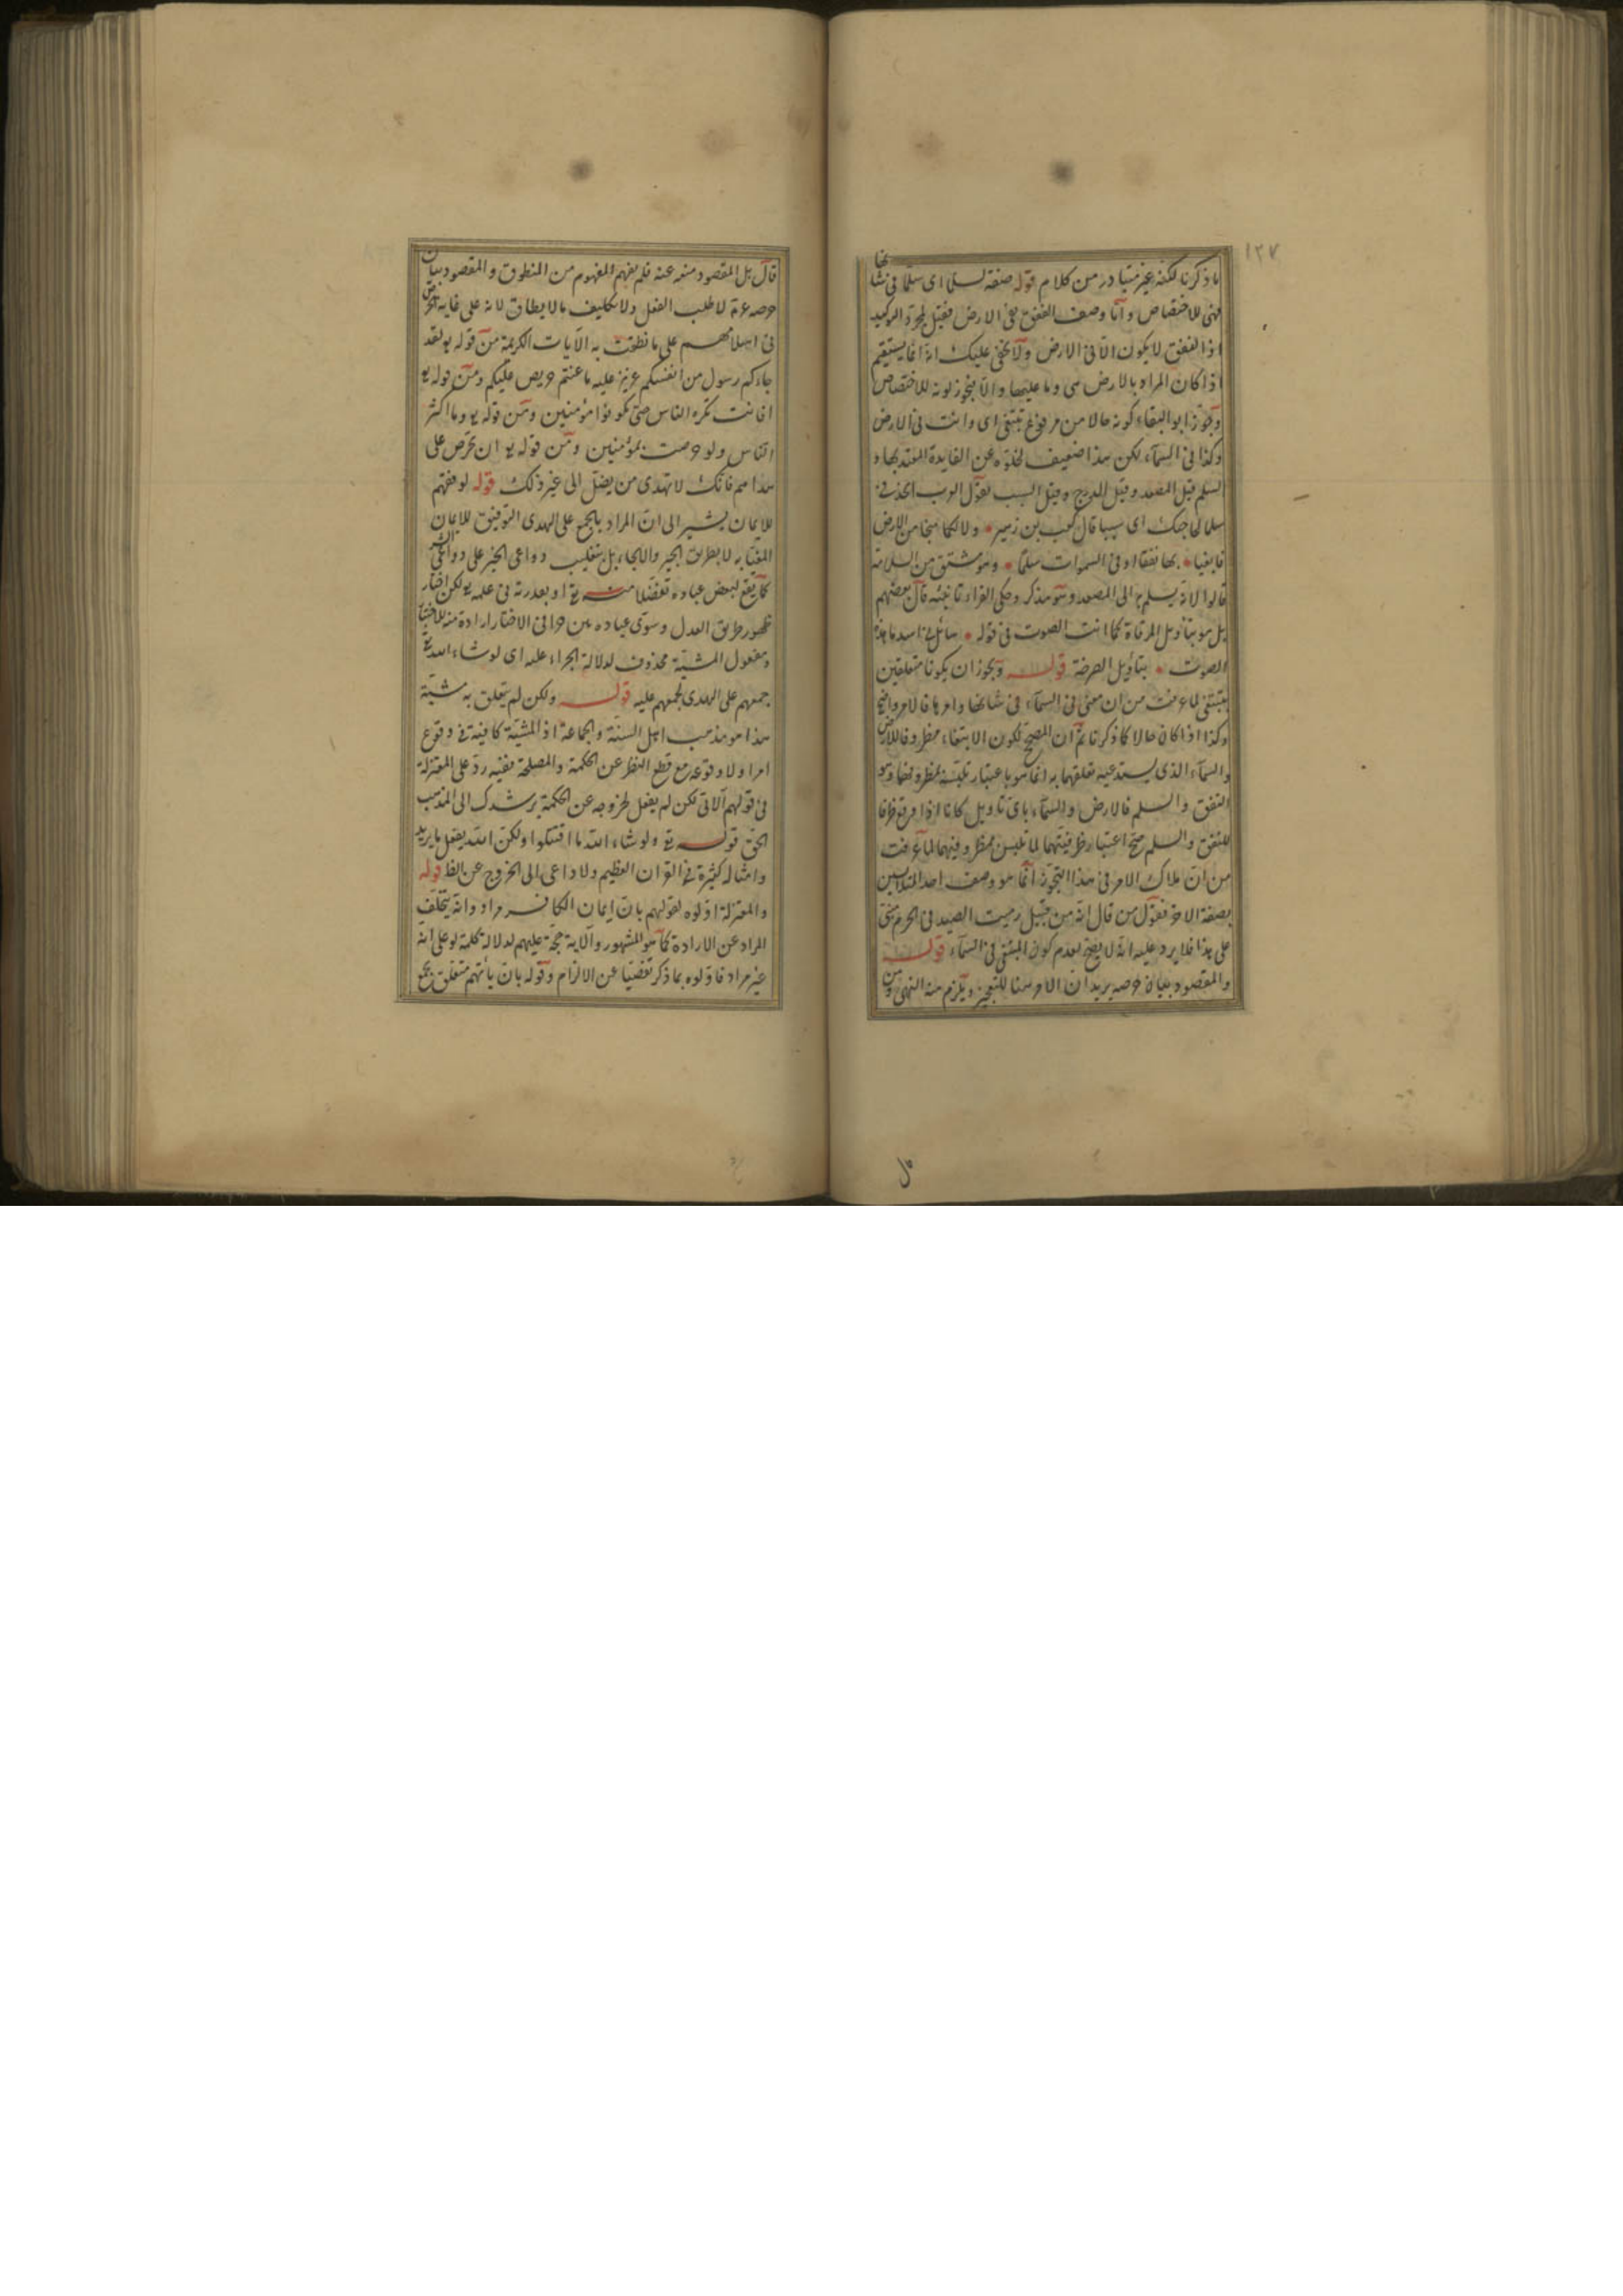 ١٢٧
ما ذكرنا لكنه غير متبادر من كلام قوله صفة لسلما اى سلما فى شانها
فهى للاختصاص واما وصف النفق بفى الارض فقيل لمجرد التوكيد
اذ النفق لا يكون الا فى الارض ولا يخفى عليك انه انما يستقيم
اذا كان المراد بالارض هى وما عليها والا فيجوز كونه للاختصاص
وجوز ابو البقاء كونه حالا من مرفوع تبتغى اى وانت فى الارض
وكذا فى السماء لكن هذا ضعيف لخلوه عن الفايدة المعتد بها و
السلم قيل المصعد وقيل الدرج وقيل السبب تقول العرب اتخذنى
سلما لحاجتك اى سببا قال كعب بن زهير ولا لكما منجا من الارض
فابغيا بها نفقا او فى السموات سلما وهو مشتق من السلامة
قالوا لانه يسلم به الى المصعد وهو مذكر وحكى الفراء تانيثه قال بعضهم
بل هو بتأويل المرقاة كما انث الصوت فى قوله سائل بنى اسد ما هذه
الصوت بتأويل الصرخة قوله ويجوز ان يكونا متعلقين
بتبتغى لما عرفت من ان معنى فى السماء فى شانها وامرها فالامر واضح
وكذا اذا كان حالا كما ذكرنا ثم ان المصحح لكون الابتغاء مظروفا للارض
والسماء الذى يستدعيه تعلقهما به انما هو باعتبار تلبسه بمظروفهما وهو
النفق والسلم فالارض والسماء باى تاويل كانا اذا وقع ظرفا
للنفق والسلم صح اعتبار ظرفيتهما لما تلبس بمظروفيهما لما عرفت
من ان ملاك الامر فى هذا التجوز انما هو وصف احد المتلابسين
بصفة الاخر فقول من قال انه من قبيل رميت الصيد فى الحرم مبنى
على هذا فلا يرد عليه انه لا يصح لعدم كون المبتغى فى السماء قوله
والمقصود بيان حرصه يريد ان الامر هنا للتعجيز ويلزم منه النهى ومن
قال بل المقصود منعه عنه فلم يفهم المفهوم من المنطوق والمقصود بيان
حرصه عم لا طلب الفعل ولا تكليف ما لا يطاق لانه على غاية الحرص
فى اسلامهم على ما نطقت به الآيات الكريمة من قوله تع لقد
جاءكم رسول من انفسكم عزيز عليه ما عنتم حريص عليكم ومن قوله تع
افانت تكره الناس حتى يكونوا مؤمنين ومن قوله تع وما اكثر
الناس ولو حرصت بمؤمنين ومن قوله تع ان تحرص على
هداهم فانك لا تهدى من يضل الى غير ذلك قوله لوفقهم
للايمان يشير الى ان المراد بالجمع على الهدى التوفيق للايمان
لا بطريق الجبر والالجاء بل بتغليب دواعى الخير على دواعى الشر
كما يقع لبعض عباده تفضلا منه تع او بقدرته فى علمه تع لكن اختار
ظهور طريق العدل وسوى عباده فى الاختيار ارادة منه للاختبار
ومفعول المشية محذوف لدلالة الجزاء عليه اى لو شاء الله تع
جمعهم على الهدى لجمعهم عليه قوله ولكن لم يتعلق به مشيته
هذا هو مذهب اهل السنة والجماعة اذ المشية كافية فى وقوع
امر او لا وقوعه مع قطع النظر عن الحكمة والمصلحة ففيه رد على المعتزلة
فى قولهم الآتى لكن لم يفعل لخروجه عن الحكمة يرشدك الى المذهب
الحق قوله تع ولو شاء الله ما اقتتلوا ولكن الله يفعل ما يريد
وامثاله كثيرة فى القرآن العظيم ولا داعى الى الخروج عن الظ قوله
والمعتزلة اولوه لقولهم بان ايمان الكافر مراد وانه يتخلف
المراد عن الارادة كما هو المشهور والآية حجة عليهم لدلالة كلمة لو على انه
غير مراد فاولوه بما ذكر تفصيا عن الالزام وقوله بان يأتيهم متعلق بجمع